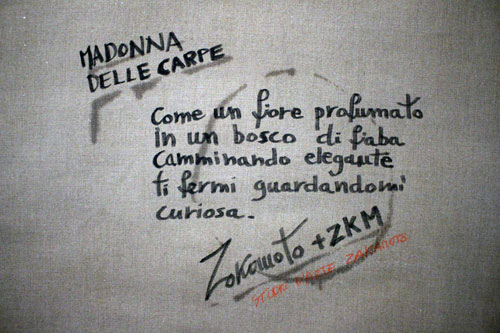 MADONNA
DELLE CARPE
Come un fiore profumato
in un bosco di fiaba
camminando elegante
ti fermi guardandomi
curiosa.
Zokamoto + ZKM